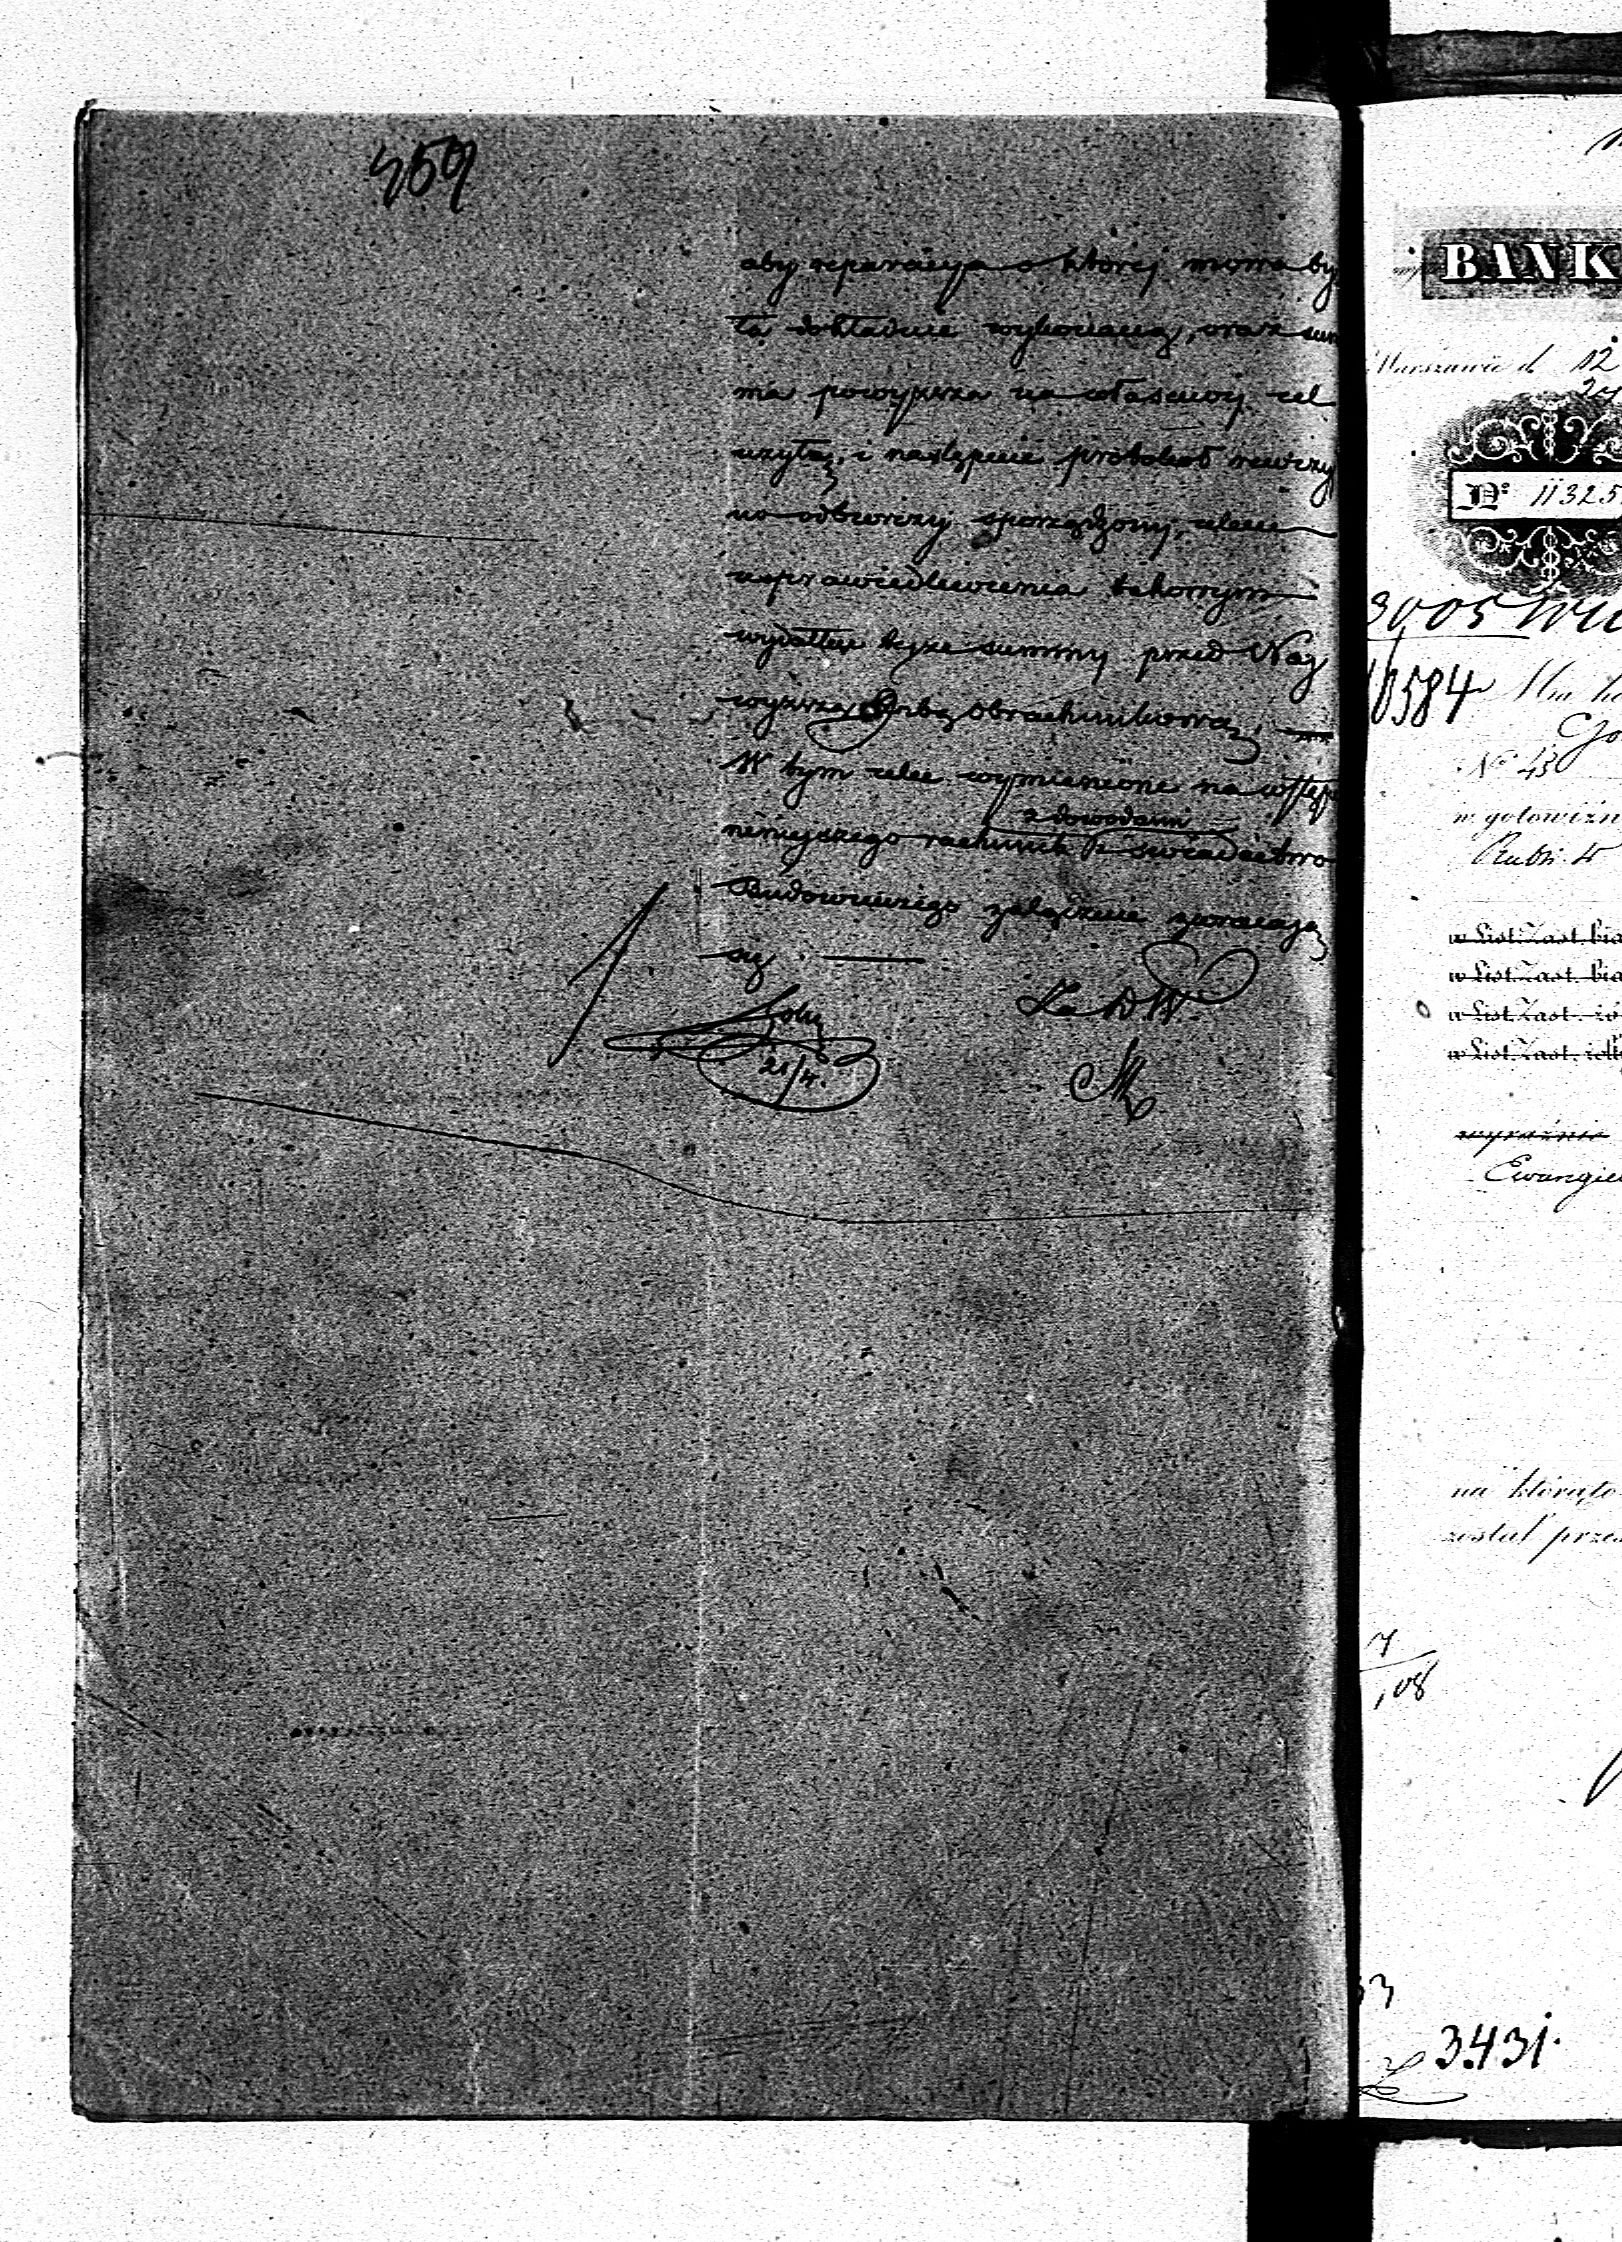 459
aby reparacya o której mowa by
ła dokładnie wykonaną, oraz sum
ma powyższa na właściwy cel
użytą, i następnie protokół rewizyj
no odbiorczy sporządzony, celem
usprawiedliwienia takowym
wydatku tejże summy przed Naj
wyższą Izbą Obrachunkową; —
W tym celu wymienione na wstępie
z dowodami
niniejszego rachunek i świadectwo
Budowniczego załącznie zwracają
się. —
Za D W.
21/4.
BANK
Warszawie d 12
24
No 11325
3005
10584
No 43
w gotowizn
Rubli
w List. Zast. bia
w List. Zast. bia
w List. Zast. żo
w List. Zast. żółt
wyraźnie
Ewangie
na którąto
został przez
7
108
3431.